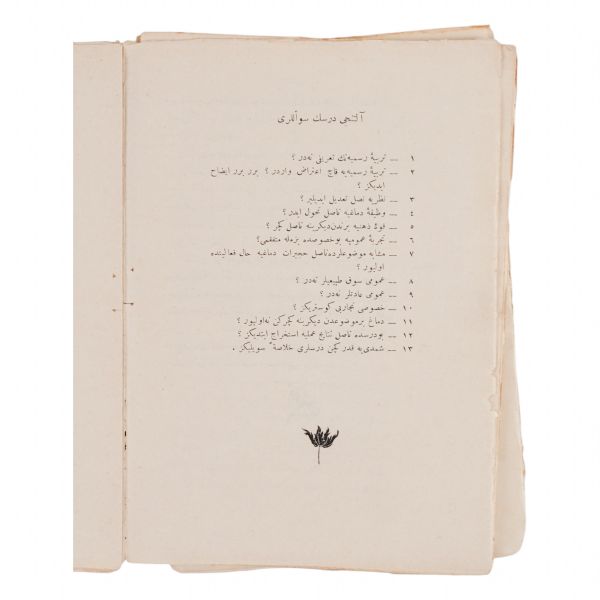 آلتنجی درسك سوٓاللری
١ — تربیهٔ رسمیه‌نك تعریفی نه‌در ؟
٢ — تربیهٔ رسمیه‌یه قاچ اعتراض واردر ؟ برر برر ایضاح
ایدیكز ؟
٣ — نظریه نصل تعدیل ایدیلیر ؟
٤ — وظیفهٔ دماغیه ناصل تحول ایدر ؟
٥ — قوهٔ ذهنیه برندن‌دیكرینه ناصل كچر ؟
٦ — تجربهٔ عمومیه بوخصوصده بزمله متفقمی؟
٧ — مشابه موضوعلرده‌ناصل حجیرات دماغیه حال فعالیتنده
اولیور ؟
٨ — عمومی سوق طبیعیلر نه‌در ؟
٩ — عمومی عادتلر نه‌در ؟
١٠ — خصوصی تجاربی كوستریكز ؟
١١ — دماغ برموضوعدن دیكرینه كچركن نه‌اولیور ؟
١٢ — بودرسده ناصل نتایج عملیه استخراج ایتدیكز ؟
١٣ — شمدی‌یه قدر كچن درسلری خلاصةً سویلیكز .